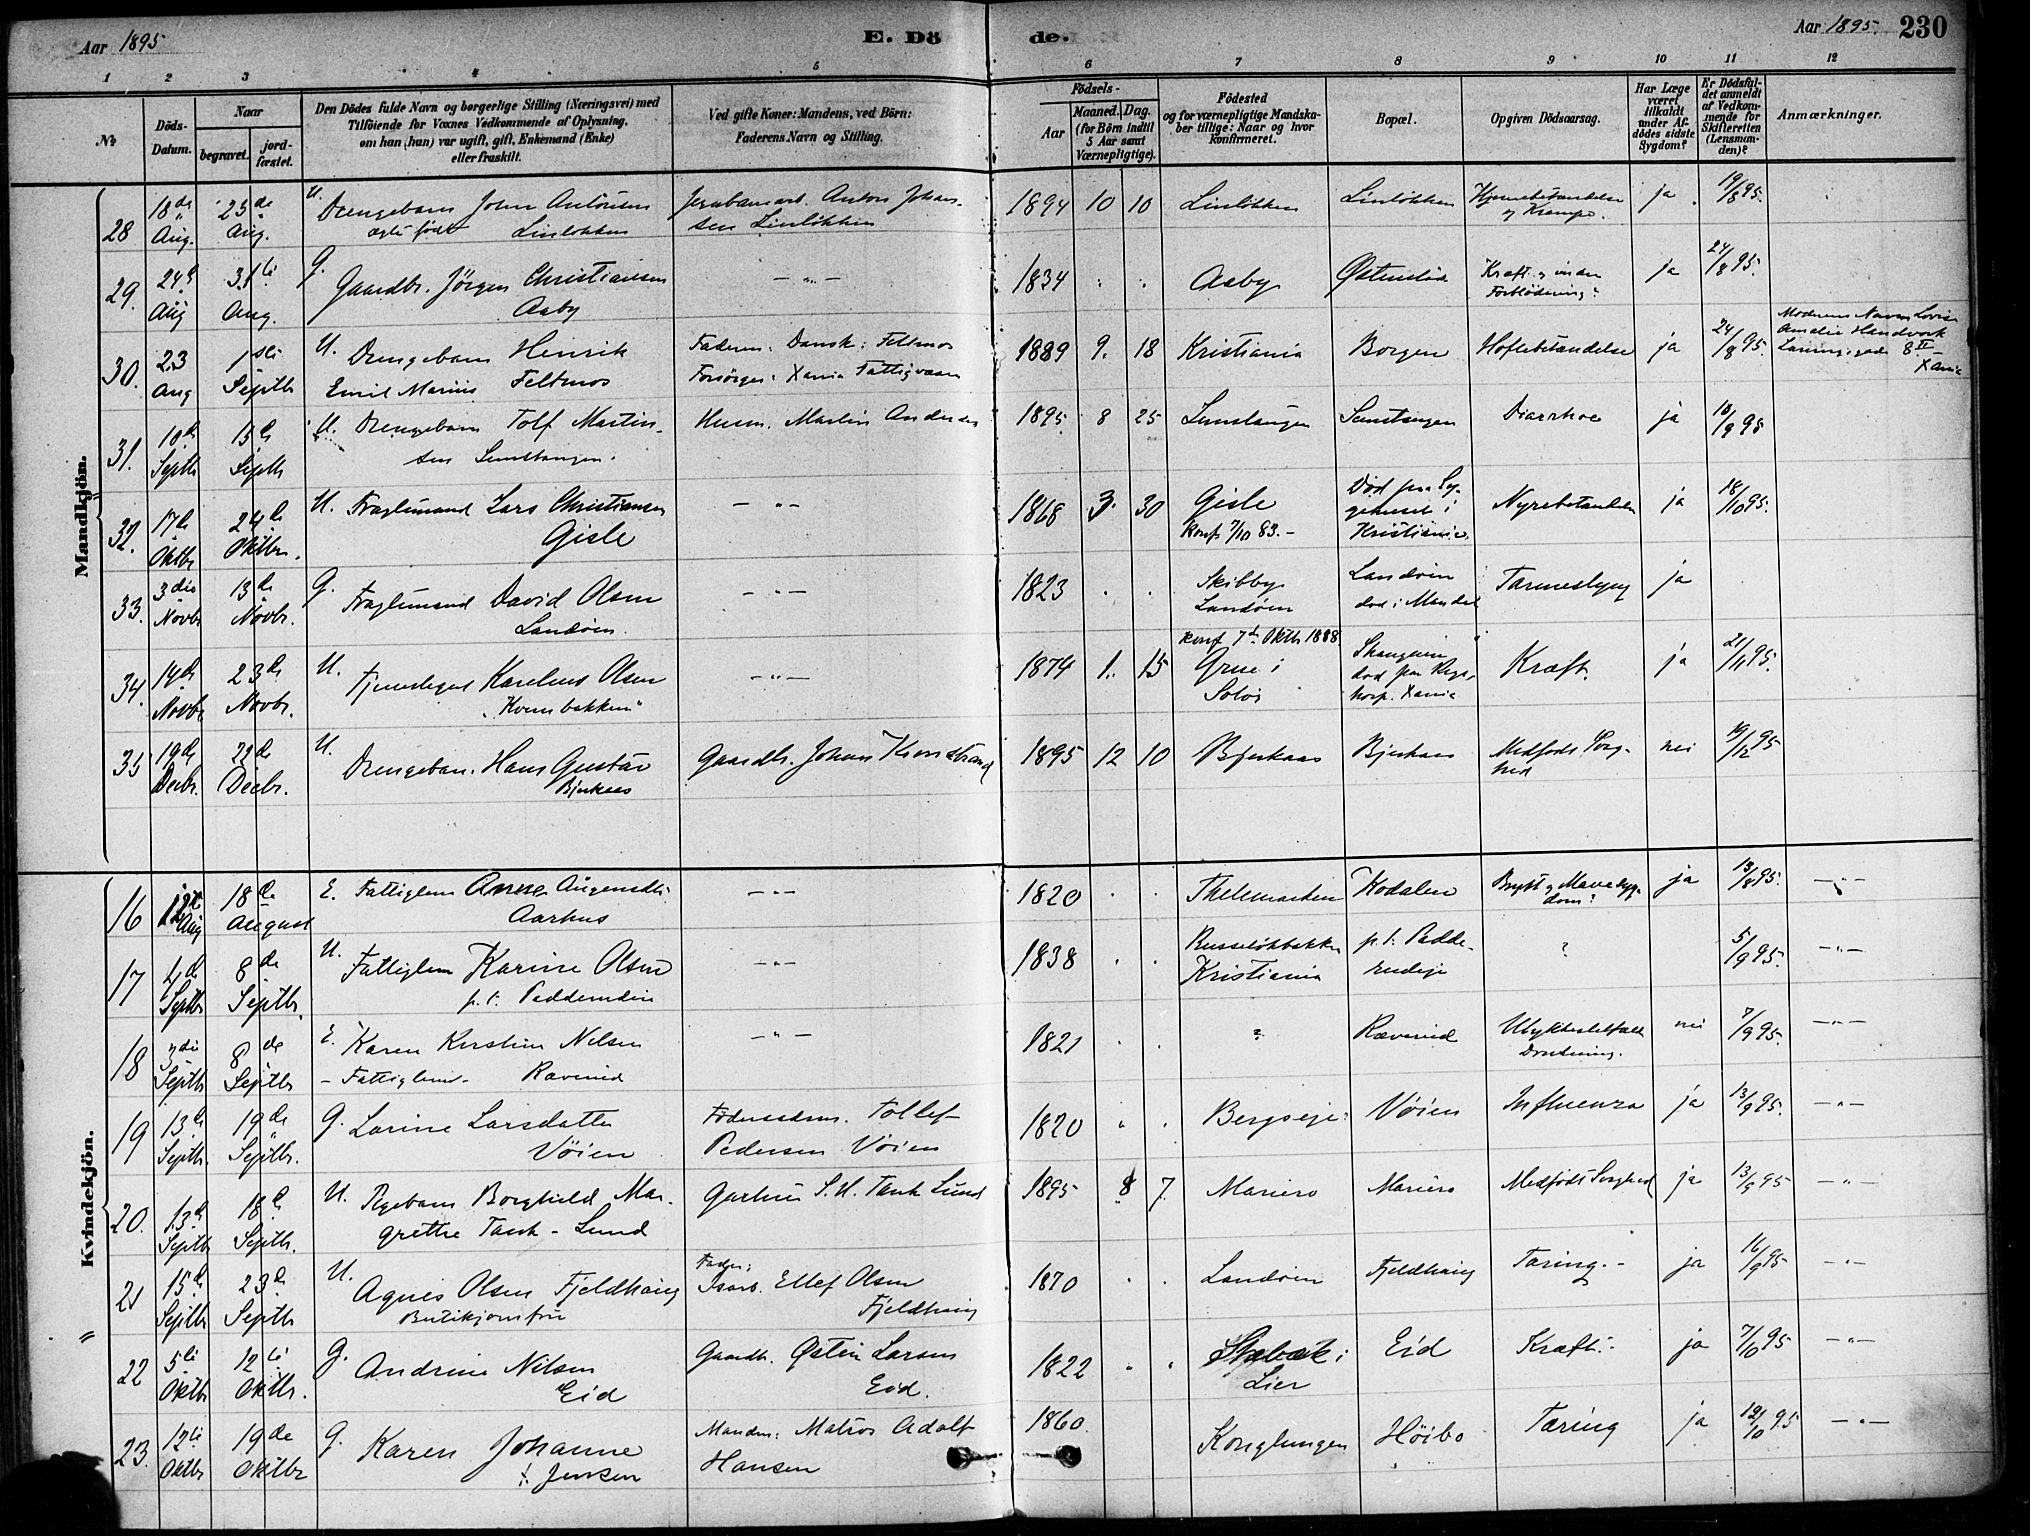 Aar 1895
E. Dö de.
Aar 1895. 230
1 2 3 4 5 6 7 8 9 10 11 12
No
Döds-
Datum.
Naar
begravet.
jord-
fæstet.
Den Dödes fulde Navn og borgerlige Stilling (Næringsvei) med
Tilföiende for Voxnes Vedkommende af Oplysning,
om han (hun) var ugift, gift, Enkemand (Enke)
eller fraskilt.
Ved gifte Koner: Mandens, ved Börn:
Faderens Navn og Stilling.
Födsels-
Aar
Maaned. Dag.
(for Börn indtil
5 Aar samt
Værnepligtige).
Födested
og for værnepligtige Mandska-
ber tillige: Naar og hvor
konfirmeret.
Bopæl.
Opgiven Dödsaarsag.
Har Læge
været
tilkaldt
under Af-
dödes sidste
Sygdom?
Er Dödsfal-
det anmeldt
af Vedkom-
mende for
Skifteretten
(Lensman-
den)?
Anmærkninger.
Mandkjön.
28 18de Aug. 23de Aug. U. Drengebarn John Antonsen
ægte født Linløkken
Jernbanearb. Anton Johan-
sen Linløkken
1894 10 10 Linløkken Linløkken Hjernebetændelse
og Krampe. ja 19/8 95.
29. 24d Aug 31te Aug. G. Gaardbr. Jörgen Christiansen
Aaby
— " — 1834 Aaby Østenstad Kræft og indre
Forblødning? ja 24/8 95.
30. 23 Aug 1ste Septb U. Drengebarn Henrik
Emil Marius Feltmos
Faderen: Dansk: Feltmos
Forsörger: Xania Fattigvæsen
1889 9. 18 Kristiania Borgen Hoftebetændelse ja 24/8 95.
Moderens Navn Lovise
Amalie Handvork
8 II
Xania
31. 10de Septb 15de Septb U. Drengebarn Tolf Martin-
sen Semstangen.
Husm. Martin Andersen
1895. 8 25 Semstangen Semstangen Diarrhoe ja 10/9 95
32. 17de Oktbr 24de Oktbr. U. Faglærmand Lars Christiansen
Gisle
— " — 1868 3. 30 Gisle
konf. 7/10 83. —
Død paa Sy-
gehuset i
Kristiania
Nyrebetændelse ja 18/10 95.
33. 3die Novbr 13de Novbr. G. David Olsen
Landøen.
— " — 1823 Skibby
Landøen
Landøen
død i Mandal
Tarmeslyng ja
34. 14de Novbr 23de Novbr. U. Tjenestegut Karelius Olsen
"Kvernbakken"
— " — 1874 1. 15 konf 7de Oktb 1888.
Grue i
Solør
død paa Rigs-
hosp. Xania
Kræft. ja 21/11 95.
35 19de Decbr. 22de Decbr. U. Drengebarn. Hans Gustav
Bjerkaas
Gaardbr. Johan Kjonstrand
1895 12 10 Bjerkaas Bjerkaas Medfødt Svag-
hed nei 19/12 95
Kvindekjön.
16 12te Aug 18de August E. Fattiglem Anne Augensdtr.
Aarhus
— " — 1820 Thelemarken Kodalen Bryst og Mavesyg-
dom? ja 13/8 95. — " —
17 4de Septbr 8de Septbr. U. Fattiglem Karine Olsen
p. t. Paddemdeie
— " — 1838 Russeløkbakken
Kristiania
p. t. Padde-
? 5/9 95. — " —
18 3die Septb 8de Septb E. Karen Kerstine Nilsen
— Fattiglem — Ravnsid
— " — 1821 ? Ulykkestilfælde
Drukning. nei 7/9 95. — " —
19 13de Septb. 19de Septb. G. Larine Larsdatter
Vöien
Tollef
Pedersen Vöien
1820 Bergseje: Vöien Influenza ja 13/9 95. — " —
20. 13de Septb 18de Septb. U. Pigebarn Borghild Mar-
grethe Tank-Lund
Gartner S. H. Tank Lund
1895 8 7. Mariero Mariero Medfødt Svaghed ja 13/9 95 — " —
21 15de Septb 23de Septb U. Agnes Olsen Fjeldhaug
Butikjomfru
Fader:
Isarb. Ellef Olsen
Fjeldhaug
1870 Landøen Fjeldhaug Tæring. — ja 16/9 95 — " —
22 5te Oktb 12te Oktb. G. Andrine Nilsen
Eid
Gaardb. Østen Larsen
Eid.
1822 i
Lier
Eid Kræft. — ja 7/10 95 — " —
23. 12te Oktbr 19de Oktbr G. Karen Johanne
f. Jensen
Manden: Matros Adolf
Hansen
1860. Konglungen Høibo Tæring ja 12/10 95 — " —